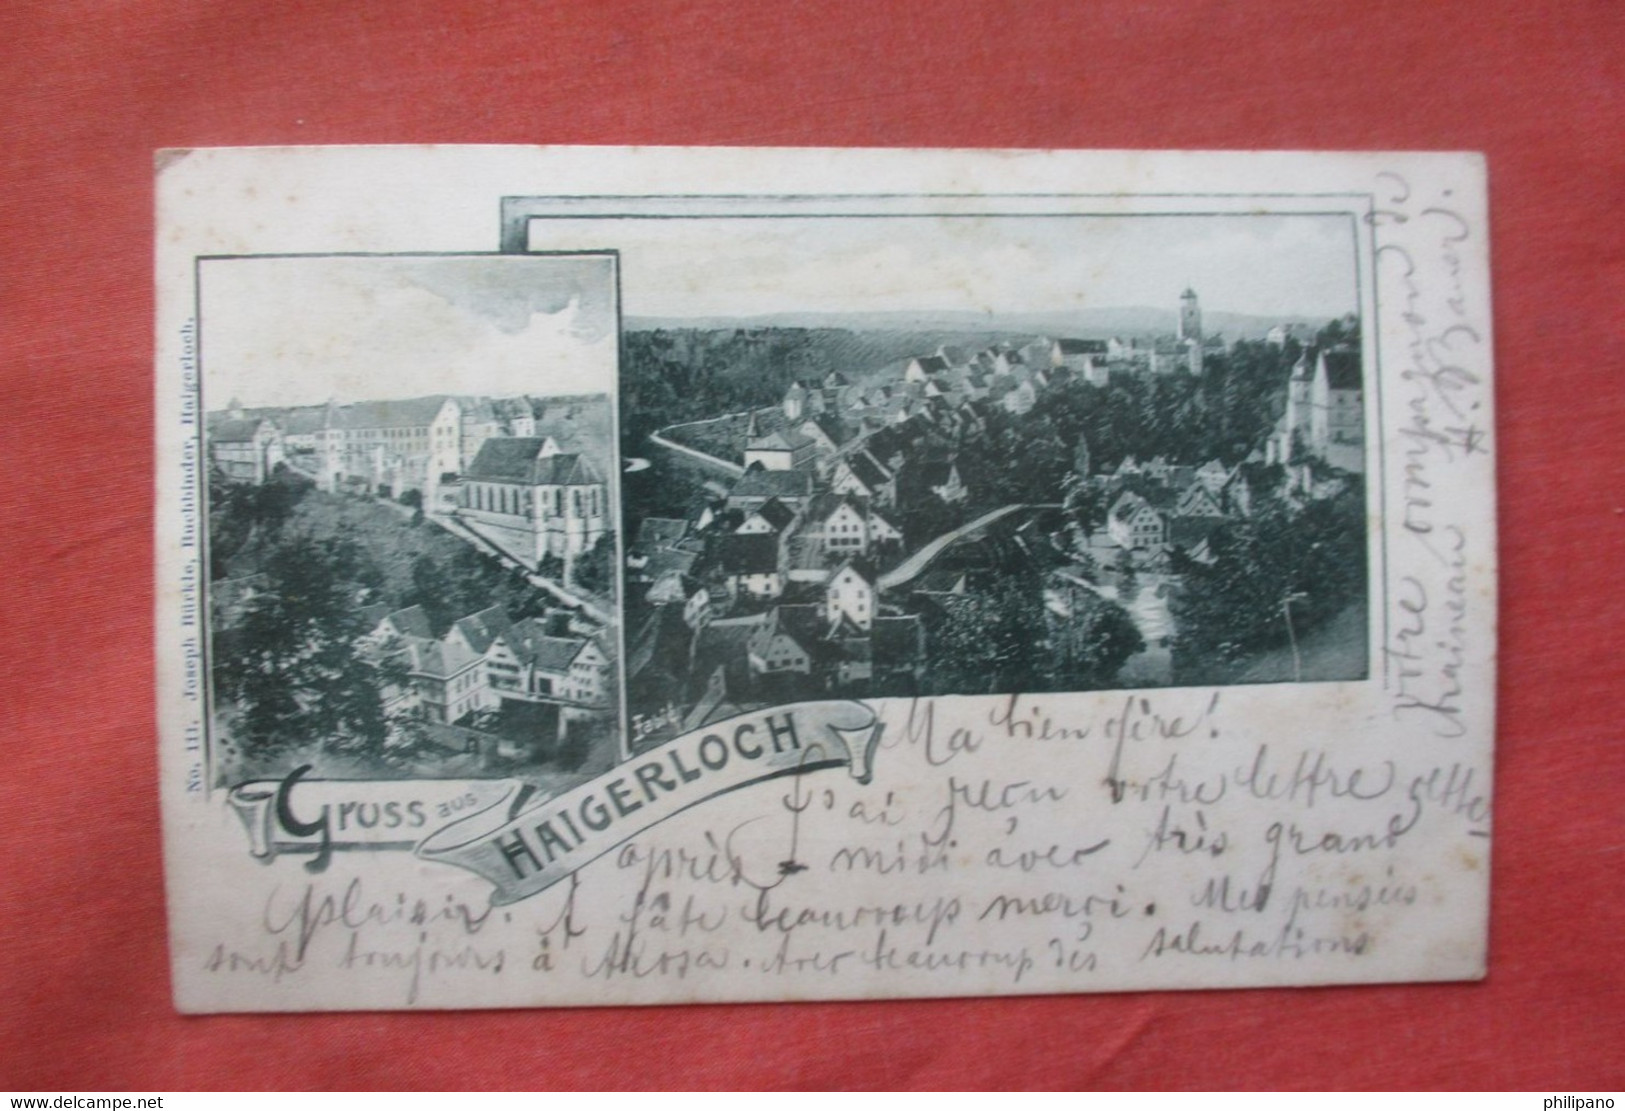 No. 111. Joseph Bürkle, Buchbinder, Haigerloch.
Gruss aus
HAIGERLOCH
Ma bien chère!
J'ai reçu votre lettre cette
après-midi avec très grand
plaisir. beaucoup merçi. Mes pensées
sont toujours à Avec beaucoup des salutations
Votre compagnon de
traineau H. Bauer.
delcampe.net
philipano